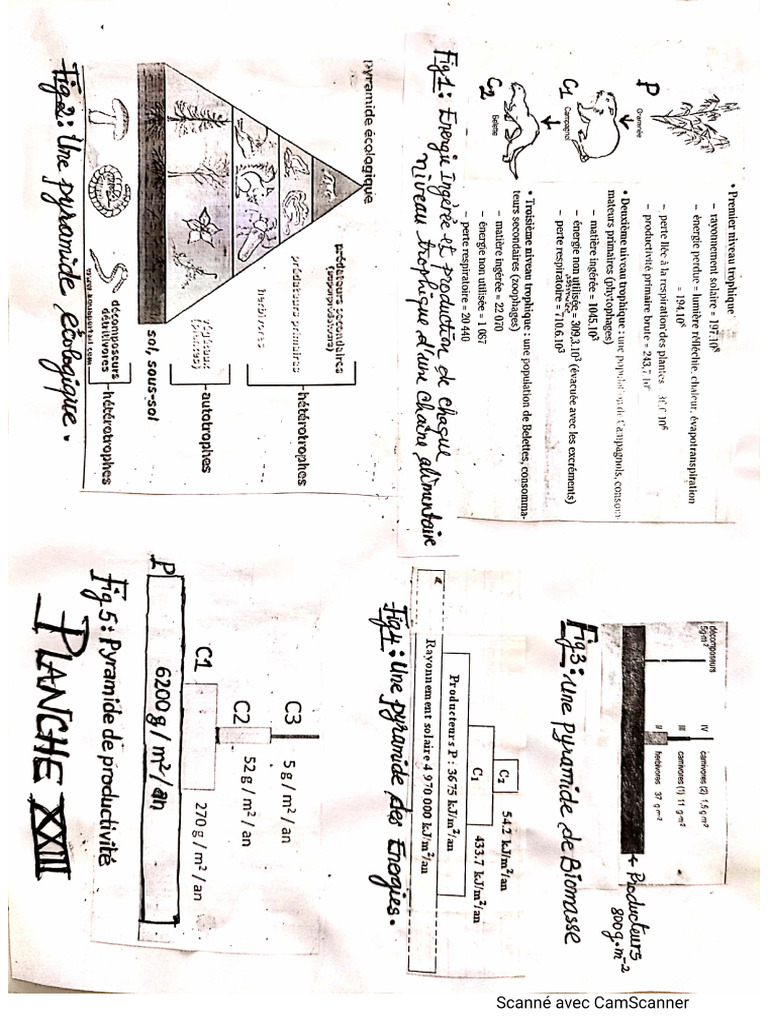 Graminée
P
Campagnol
C1
Belette
C2
• Premier niveau trophique
– rayonnement solaire = 197.10⁸
– énergie perdue = lumière réfléchie, chaleur, évapotranspiration
= 194.10⁸
– perte liée à la respiration des plantes
– productivité primaire brute = 243,7.10⁶
• Deuxième niveau trophique : une population de Campagnols, consom-
mateurs primaires (phytophages)
– matière ingérée = 1045.10³
– énergie non utilisée = 309,3.10³ (évacuée avec les excréments)
– perte respiratoire = 710.6.10³
• Troisième niveau trophique : une population de Belettes, consomma-
teurs secondaires (zoophages)
– matière ingérée = 22 070
– énergie non utilisée = 1 087
– perte respiratoire = 20 440
Fig1: Energie Ingérée et production de chaque
niveau trophique d'une chaîne alimentaire
pyramide écologique
prédateurs secondaires
(superprédateurs)
prédateurs primaires
herbivores
hétérotrophes
végétaux
autotrophes
sol, sous-sol
décomposeurs
détritivores
www.aquaportail.com
hétérotrophes
Fig 2: Une pyramide écologique.
décomposeurs
5g·m²
IV carnivores (2) 1,5g·m²
III carnivores (1) 11 g·m²
II herbivores 37 g·m²
Producteurs
800g.m⁻²
Fig3: Une Pyramide de Biomasse
C₂ 54.2 kJ/m²/an
C₁ 433.7 kJ/m²/an
Producteurs P : 3675 kJ/m²/an
Rayonnement solaire 4 970 000 kJ/m²/an
Fig4: Une pyramide des Energies.
C3 5 g / m² / an
C2 52 g / m² / an
C1 270 g / m² / an
P 6200 g / m² / an
Fig 5: Pyramide de productivité
PLANCHE XXIII
Scanné avec CamScanner